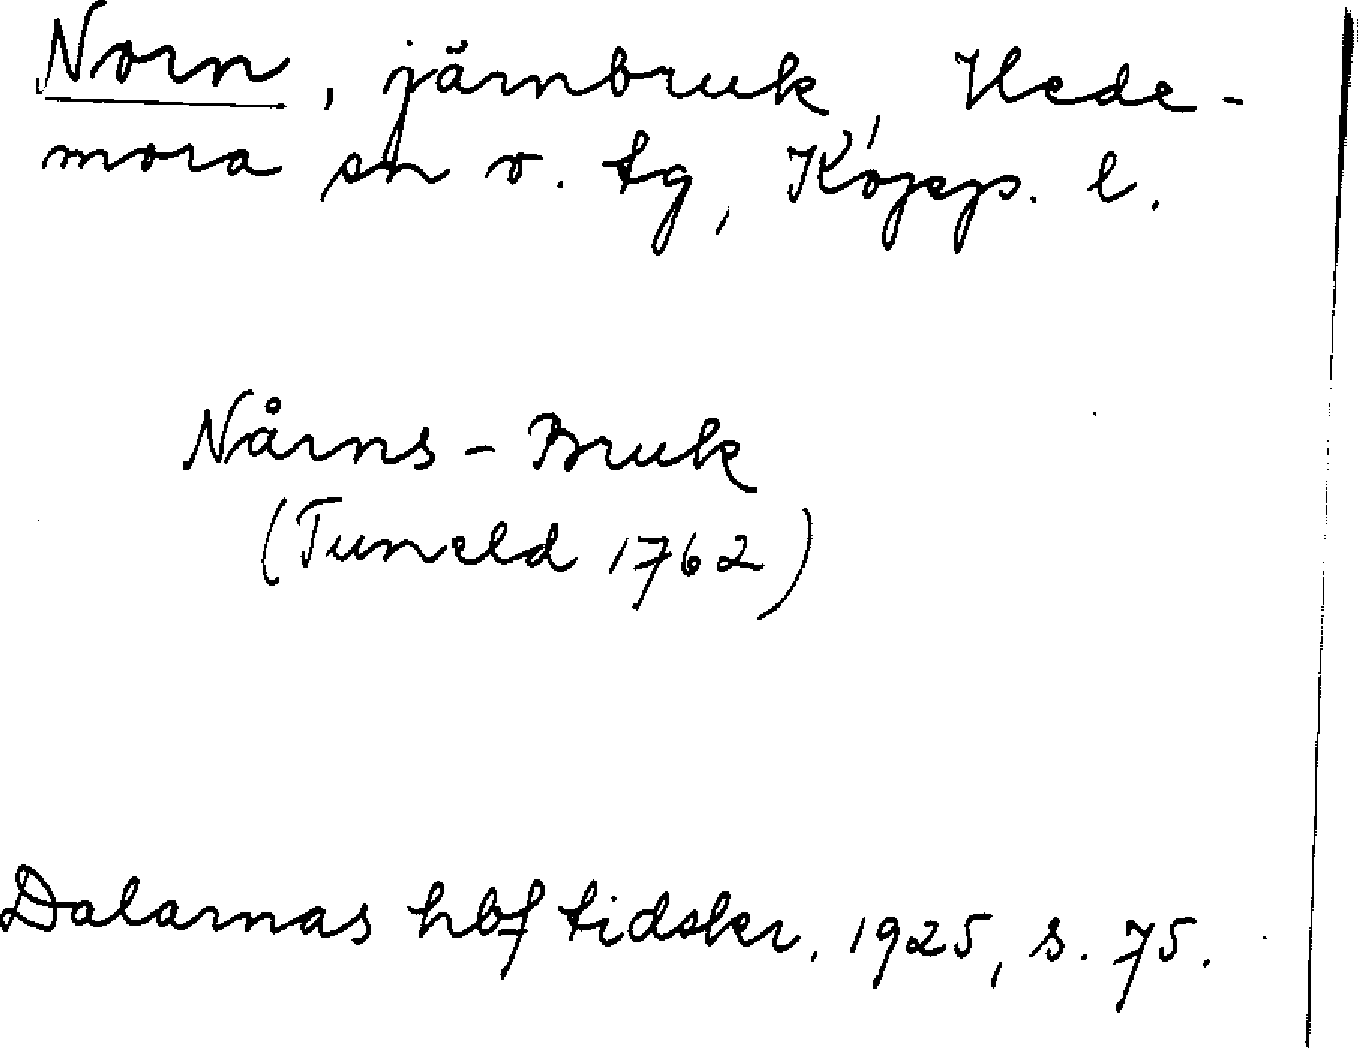 Norn, järnbruk, Hede-
mora sn o. tg, Kopp. l.
Nårns-Bruk
(Tuneld 1762)
Dalarnas hbf tidskr. 1925, s. 75.